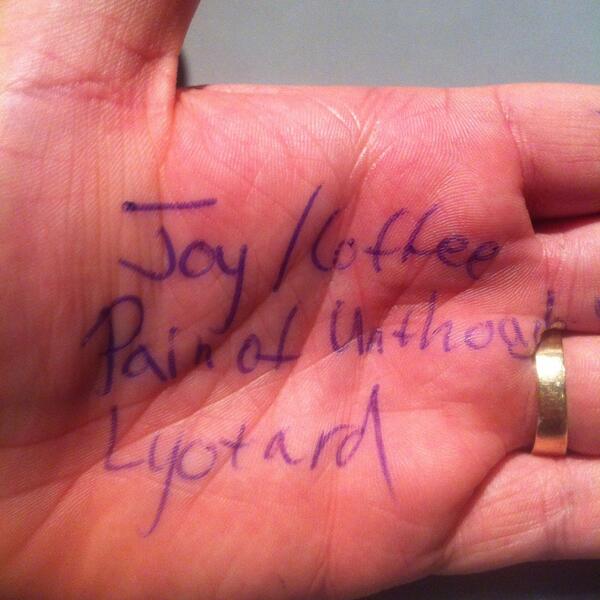 Joy / Coffee
Pain of Unthought
Lyotard